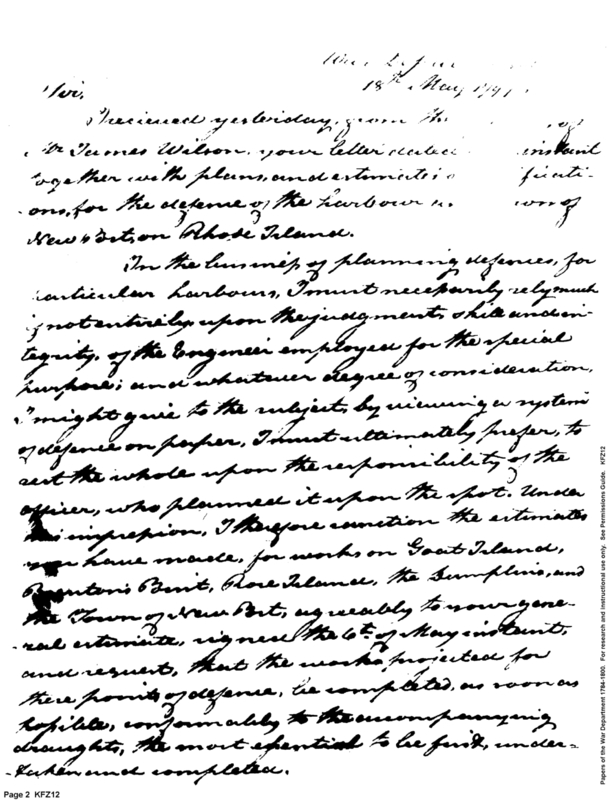 War Depar
18th May 179
Sir,
I received yesterday, from the of
Mr James Wilson, your letter dated instant
together with plans, and estimates ficati-
ons, for the defence of the harbour own of
New Port, on Rhode Island.
In the business of planning defences, for
particular harbours, I must necessarily rely much
if not entirely, upon the judgment, skill and in-
tegrity, of the Engineer employed for the special
purpose; and whatever degree of consideration,
I might give to the subject, by viewing a system
of defence on paper, I must ultimately prefer, to
rest the whole upon the responsibility of the
officer, who planned it upon the spot. Under
this impression, I therefore sanction the estimates
you have made, for works on Goat Island,
Brenton's Point, Rose Island, the Dumplins, and
the Town of New Port, agreeably to your gene-
ral estimate, signed the 6th of May instant,
and request, that the works projected for
these points of defence, be completed, as soon as
possible, conformably to the accompanying
draughts, the most essential to be first, under-
-taken and completed.
Page 2 KFZ12
Papers of the War Department 1784-1800. For research and instructional use only. See Permissions Guide. KFZ12